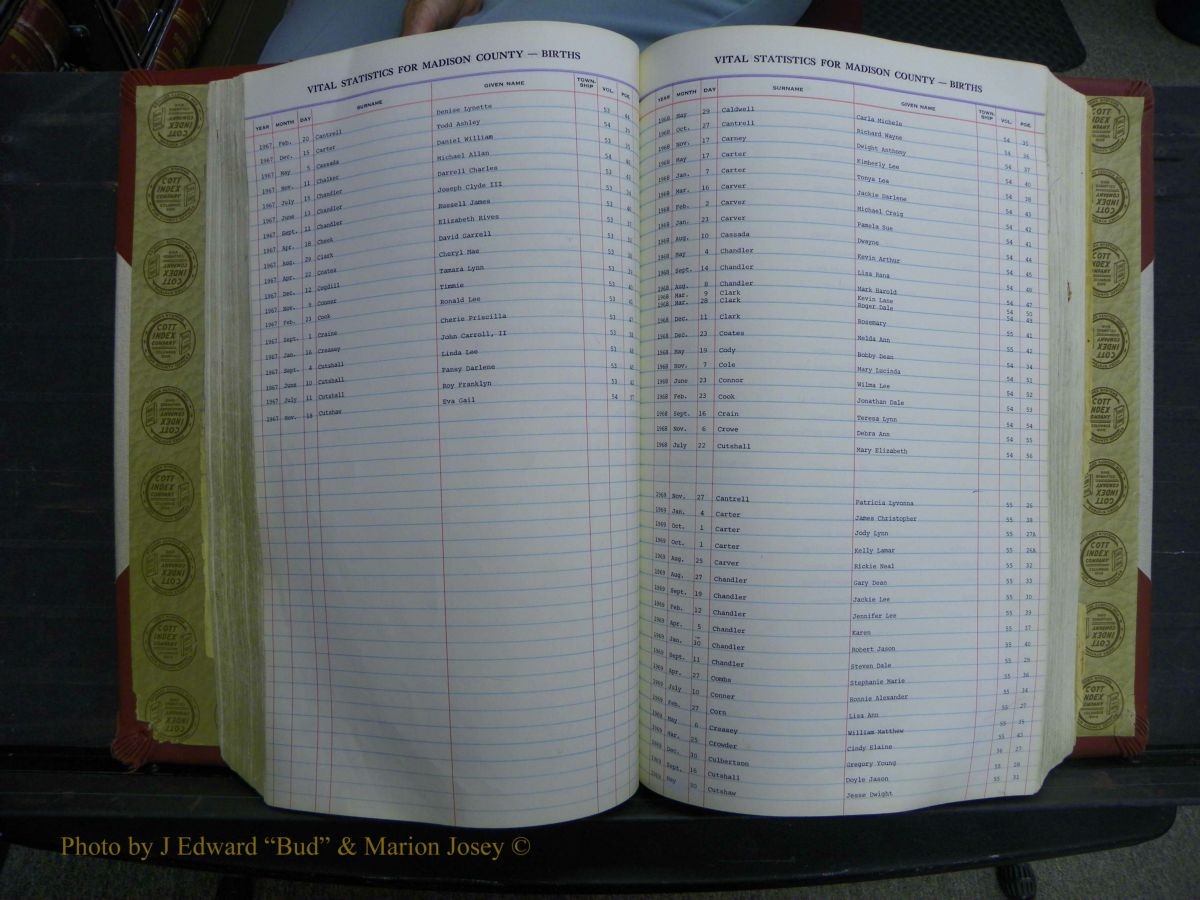 VITAL STATISTICS FOR MADISON COUNTY — BIRTHS
YEAR MONTH DAY SURNAME GIVEN NAME TOWN-SHIP VOL. PGE.
1967 Feb. 20 Cantrell Denise Lynette 53
1967 Dec. 15 Carter Todd Ashley 54
1967 May 5 Cassada Daniel William 53
1967 Nov. 11 Chalker Michael Allan 54
1967 July 15 Chandler Darrell Charles 53
1967 June 13 Chandler Joseph Clyde III 53
1967 Sept. 11 Chandler Russell James 53
1967 Apr. 18 Cheek Elizabeth Rives 53
1967 Aug. 29 Clark David Garrell 53
1967 Apr. 22 Coates Cheryl Mae 53
1967 Dec. 12 Cogdill Tamara Lynn
1967 Nov. 9 Connor Timmie
1967 Feb. 23 Cook Ronald Lee 53
1967 Sept. 1 Craine Cherie Priscilla 53
1967 Jan. 16 Creasey John Carroll, II 53
1967 Sept. 4 Cutshall Linda Lee 53
1967 June 10 Cutshall Pansy Darlene 53
1967 July 11 Cutshall Roy Franklyn 53
1967 Nov. 18 Cutshaw Eva Gail 54
VITAL STATISTICS FOR MADISON COUNTY — BIRTHS
YEAR MONTH DAY SURNAME GIVEN NAME TOWN-SHIP VOL. PGE
1968 May 29 Caldwell Carla Michele 54 35
1968 Oct. 27 Cantrell Richard Wayne 54 36
1968 Nov. 17 Carney Dwight Anthony 54 37
1968 May 17 Carter Kimberly Lee 54 40
1968 Jan. 7 Carter Tonya Lea 54 38
1968 Mar. 16 Carver Jackie Darlene 54 43
1968 Feb. 2 Carver Michael Craig 54 42
1968 Jan. 23 Carver Pamela Sue 54 41
1968 Aug. 10 Cassada Dwayne 54 44
1968 May 4 Chandler Kevin Arthur 54 45
1968 Sept. 14 Chandler Lisa Rana 54
1968 Aug. 8 Chandler Mark Harold 54 47
1968 Mar. 9 Clark Kevin Lane 54 50
1968 Mar. 28 Clark Roger Dale 54 49
1968 Dec. 11 Clark Rosemary 55 41
1968 Dec. 23 Coates Nelda Ann 55 42
1968 May 19 Cody Bobby Dean 54 34
1968 Nov. 7 Cole Mary Lucinda 54 51
1968 June 23 Connor Wilma Lee 54 52
1968 Feb. 23 Cook Jonathan Dale 54 53
1968 Sept. 16 Crain Teresa Lynn 54 54
1968 Nov. 6 Crowe Debra Ann 54 55
1968 July 22 Cutshall Mary Elizabeth 54 56
1969 Nov. 27 Cantrell Patricia Lyvonna 55 26
1969 Jan. 4 Carter James Christopher 55 38
1969 Oct. 1 Carter Jody Lynn 55 27A
1969 Oct. 1 Carter Kelly Lamar 55 26A
1969 Aug. 25 Carver Rickie Neal 55 32
1969 Aug. 27 Chandler Gary Dean 55 33
1969 Sept. 19 Chandler Jackie Lee 55 30
1969 Feb. 12 Chandler Jennifer Lee 55 39
1969 Apr. 5 Chandler Karen 55 37
1969 Jan. 30 Chandler Robert Jason 55 40
1969 Sept. 11 Chandler Steven Dale 55 29
1969 Apr. 27 Combs Stephanie Marie 55 36
1969 July 10 Conner Ronnie Alexander 55 34
1969 Feb. 27 Corn Lisa Ann 55 27
1969 May 6 Creasey William Matthew 55 35
1969 Mar. 25 Crowder Cindy Elaine 55
1969 Dec. 30 Culbertson Gregory Young 56 27
1969 Sept. 16 Cutshall Doyle Jason 55 28
1969 May 30 Cutshaw Jesse Dwight 55 31
COTT INDEX COMPANY
Photo by J Edward “Bud” & Marion Josey ©